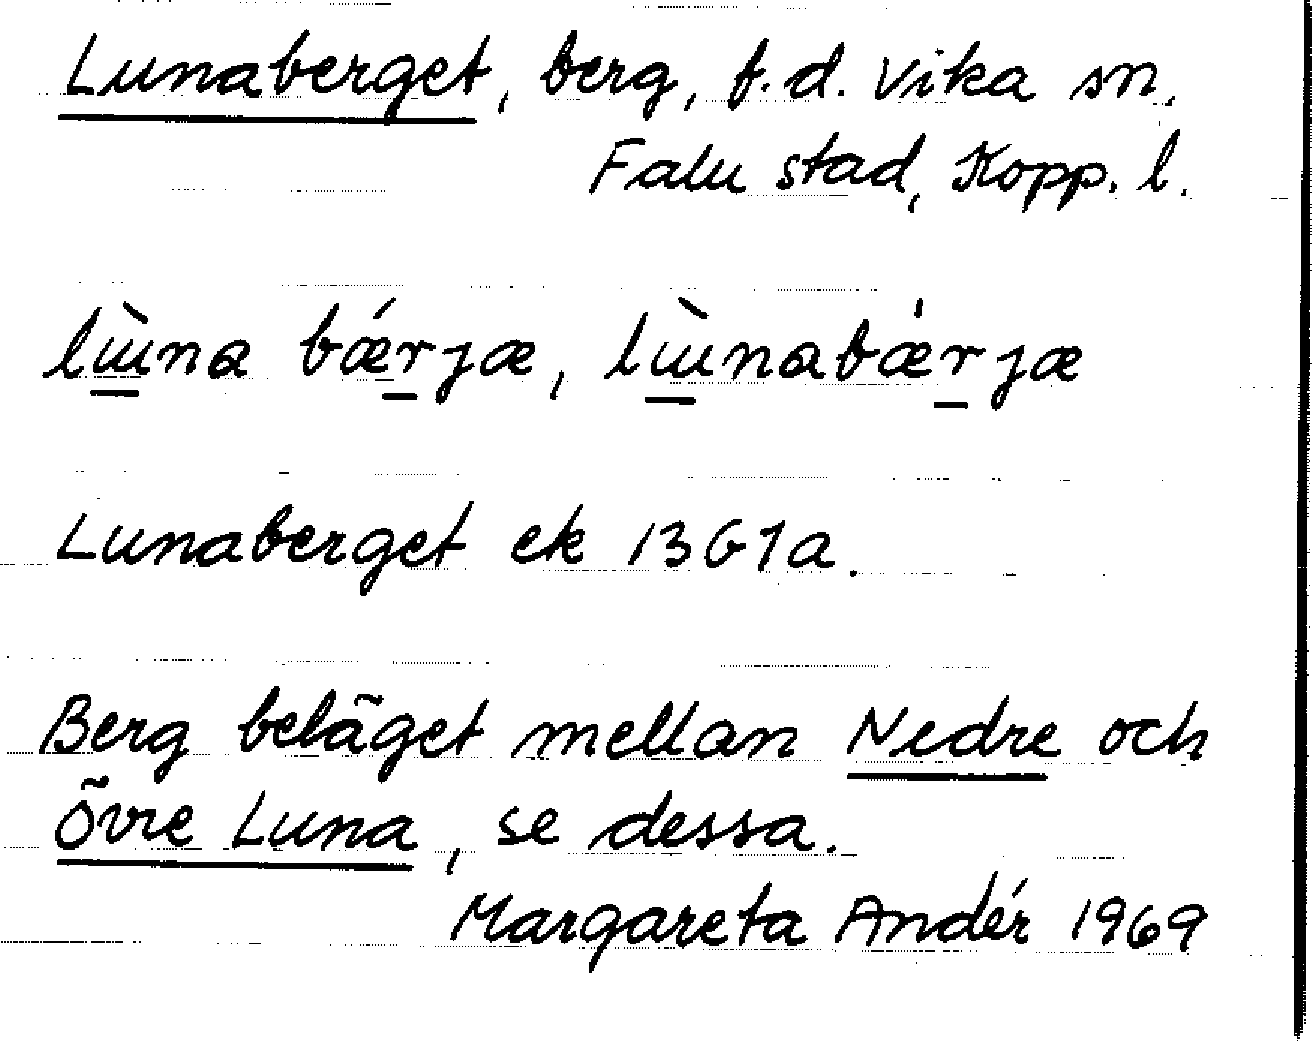 Lunaberget, berg, f.d. Vika sn,
Falu stad, Kopp. l.
lɯ̀na bǽrjæ, lɯ̀nabæ̀rjæ
Lunaberget ek 13G1a.
Berg beläget mellan Nedre och
Övre Luna, se dessa.
Margareta Andér 1969